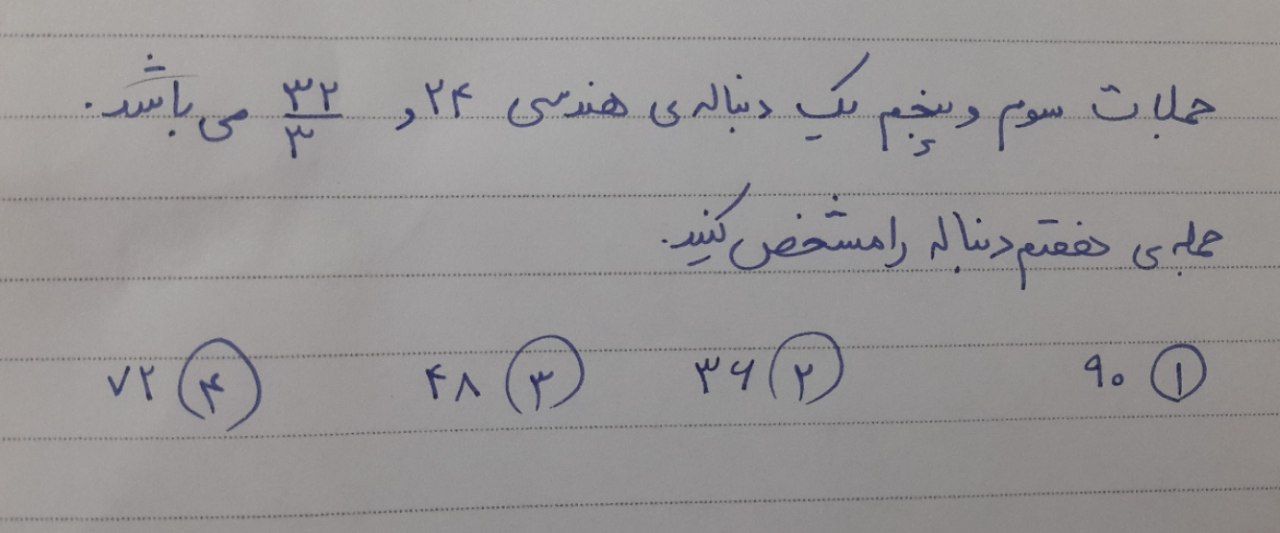 جملات سوم و پنجم یک دنباله‌ی هندسی ۲۴ و ۳۲/۳ می باشد.
جمله‌ی هفتم دنباله را مشخص کنید.
۱) ۹۰ ۲) ۳۶ ۳) ۴۸ ۴) ۷۲